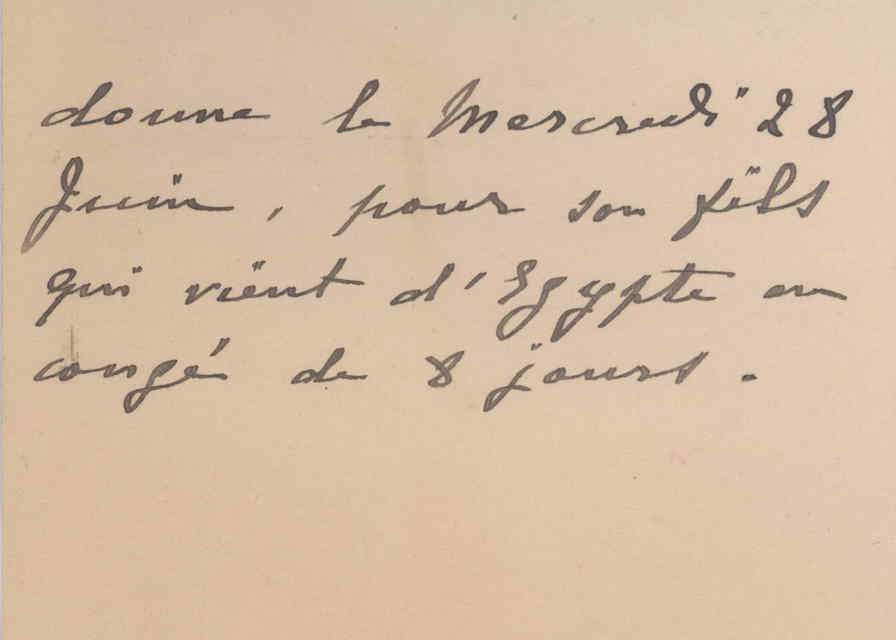 donne le Mercredi 28
Juin, pour son fils
qui vient d'Egypte en
congé de 8 jours.